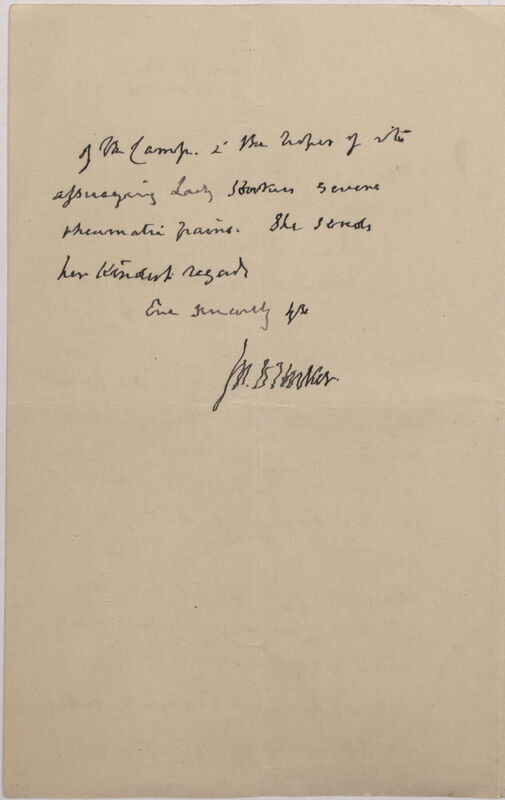 of the Camp. i the hopes of its
assuaging Lady Hookers severe
rheumatic pains. She sends
her Kindest regards
Ever sincerely yrs
Jos. D Hooker.